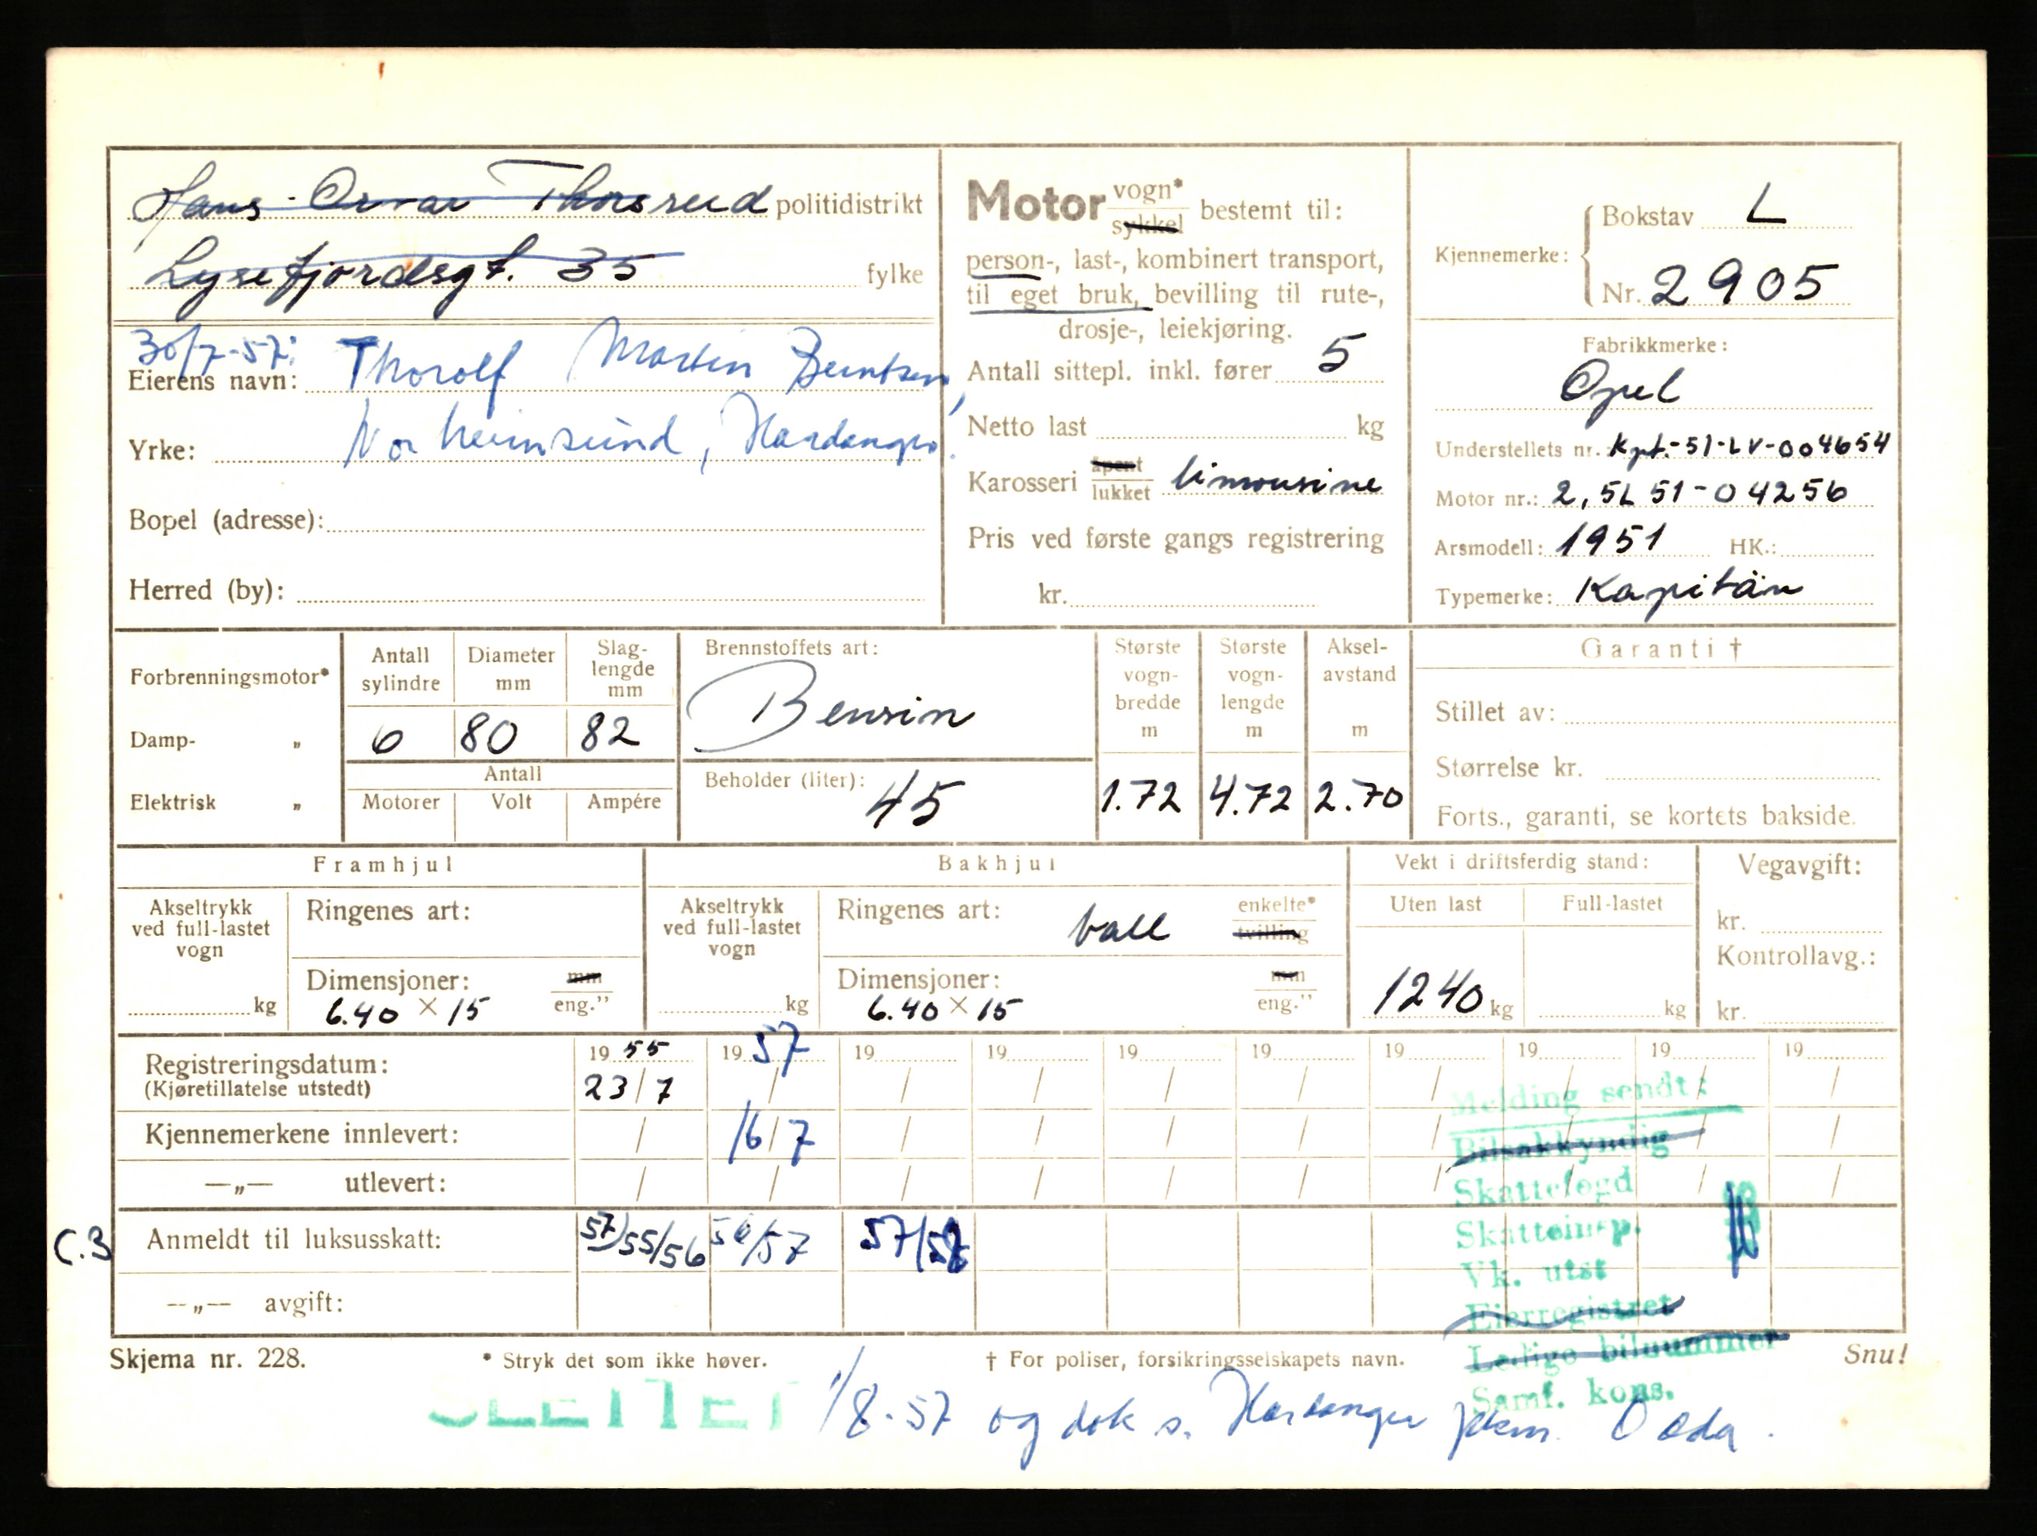 Hans Orvar Thorsrud politidistrikt
Lysefjordsgt. 35 fylke
30/7-57:
Eierens navn: Thorolf Martin Berntsen,
Yrke: Norheimsund, Hardanger.
Bopel (adresse):
Herred (by):
Motor vogn* sykkel bestemt til:
person-, last-, kombinert transport,
til eget bruk, bevilling til rute-,
drosje-, leiekjøring.
Antall sittepl. inkl. fører 5
Netto last kg
Karosseri åpent lukket limousine
Pris ved første gangs registrering
kr.
Kjennemerke: Bokstav L
Nr. 2905
Fabrikkmerke:
Opel
Understellets nr. Kpt.-51-LV-004654
Motor nr.: 2,5L 51-04256
Arsmodell: 1951 HK.:
Typemerke: Kapitän
Forbrenningsmotor*
Damp- „
Elektrisk „
Antall sylindre 6
Diameter mm 80
Slag-lengde mm 82
Antall
Motorer Volt Ampére
Brennstoffets art:
Bensin
Beholder (liter): 45
Største vogn-bredde m 1.72
Største vogn-lengde m 4.72
Aksel-avstand m 2.70
Garanti †
Stillet av:
Størrelse kr.
Forts., garanti, se kortets bakside.
Framhjul
Akseltrykk ved full-lastet vogn kg
Ringenes art:
Dimensjoner: mm
6.40 × 15 eng."
Bakhjul
Akseltrykk ved full-lastet vogn kg
Ringenes art: ball enkelte* tvilling
Dimensjoner: mm
6.40 × 15 eng."
Vekt i driftsferdig stand:
Uten last Full-lastet
1240 kg kg
Vegavgift:
kr.
Kontrollavg.:
kr.
Registreringsdatum: 19 55 19 57 19 19 19 19 19 19 19 19
(Kjøretillatelse utstedt) 23/7 / / / / / / / / /
Kjennemerkene innlevert: / 16/7 / / / / / / / /
—„— utlevert: / / / / / / / / / /
C.3 Anmeldt til luksusskatt: 57/55/56 56/57 57/58
—„— avgift:
Melding sendt:
Bilsakkyndig
Skattefogd
Skatteinsp.
Vk. utst
Eierregistret
Ledige bilnummer
Samf. kons.
Skjema nr. 228. * Stryk det som ikke høver. † For poliser, forsikringsselskapets navn. Snu!
SLETTET 1/8-57 og dok s. Hardanger pkm. Odda.